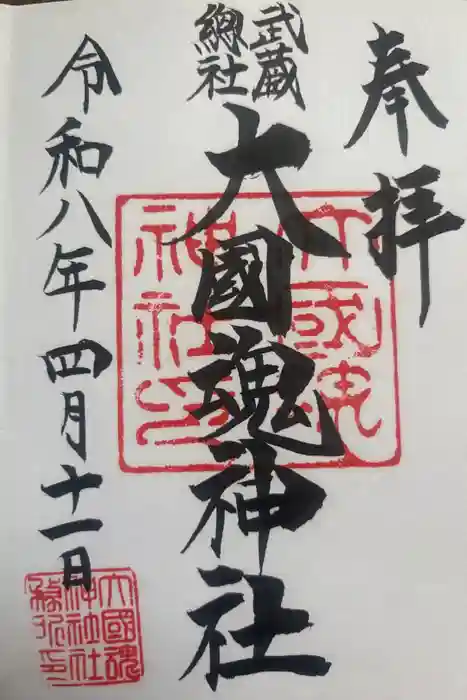 奉拝
武蔵
總社
大國魂神社
令和八年四月十一日
大國魂
神社印
大國魂
神社